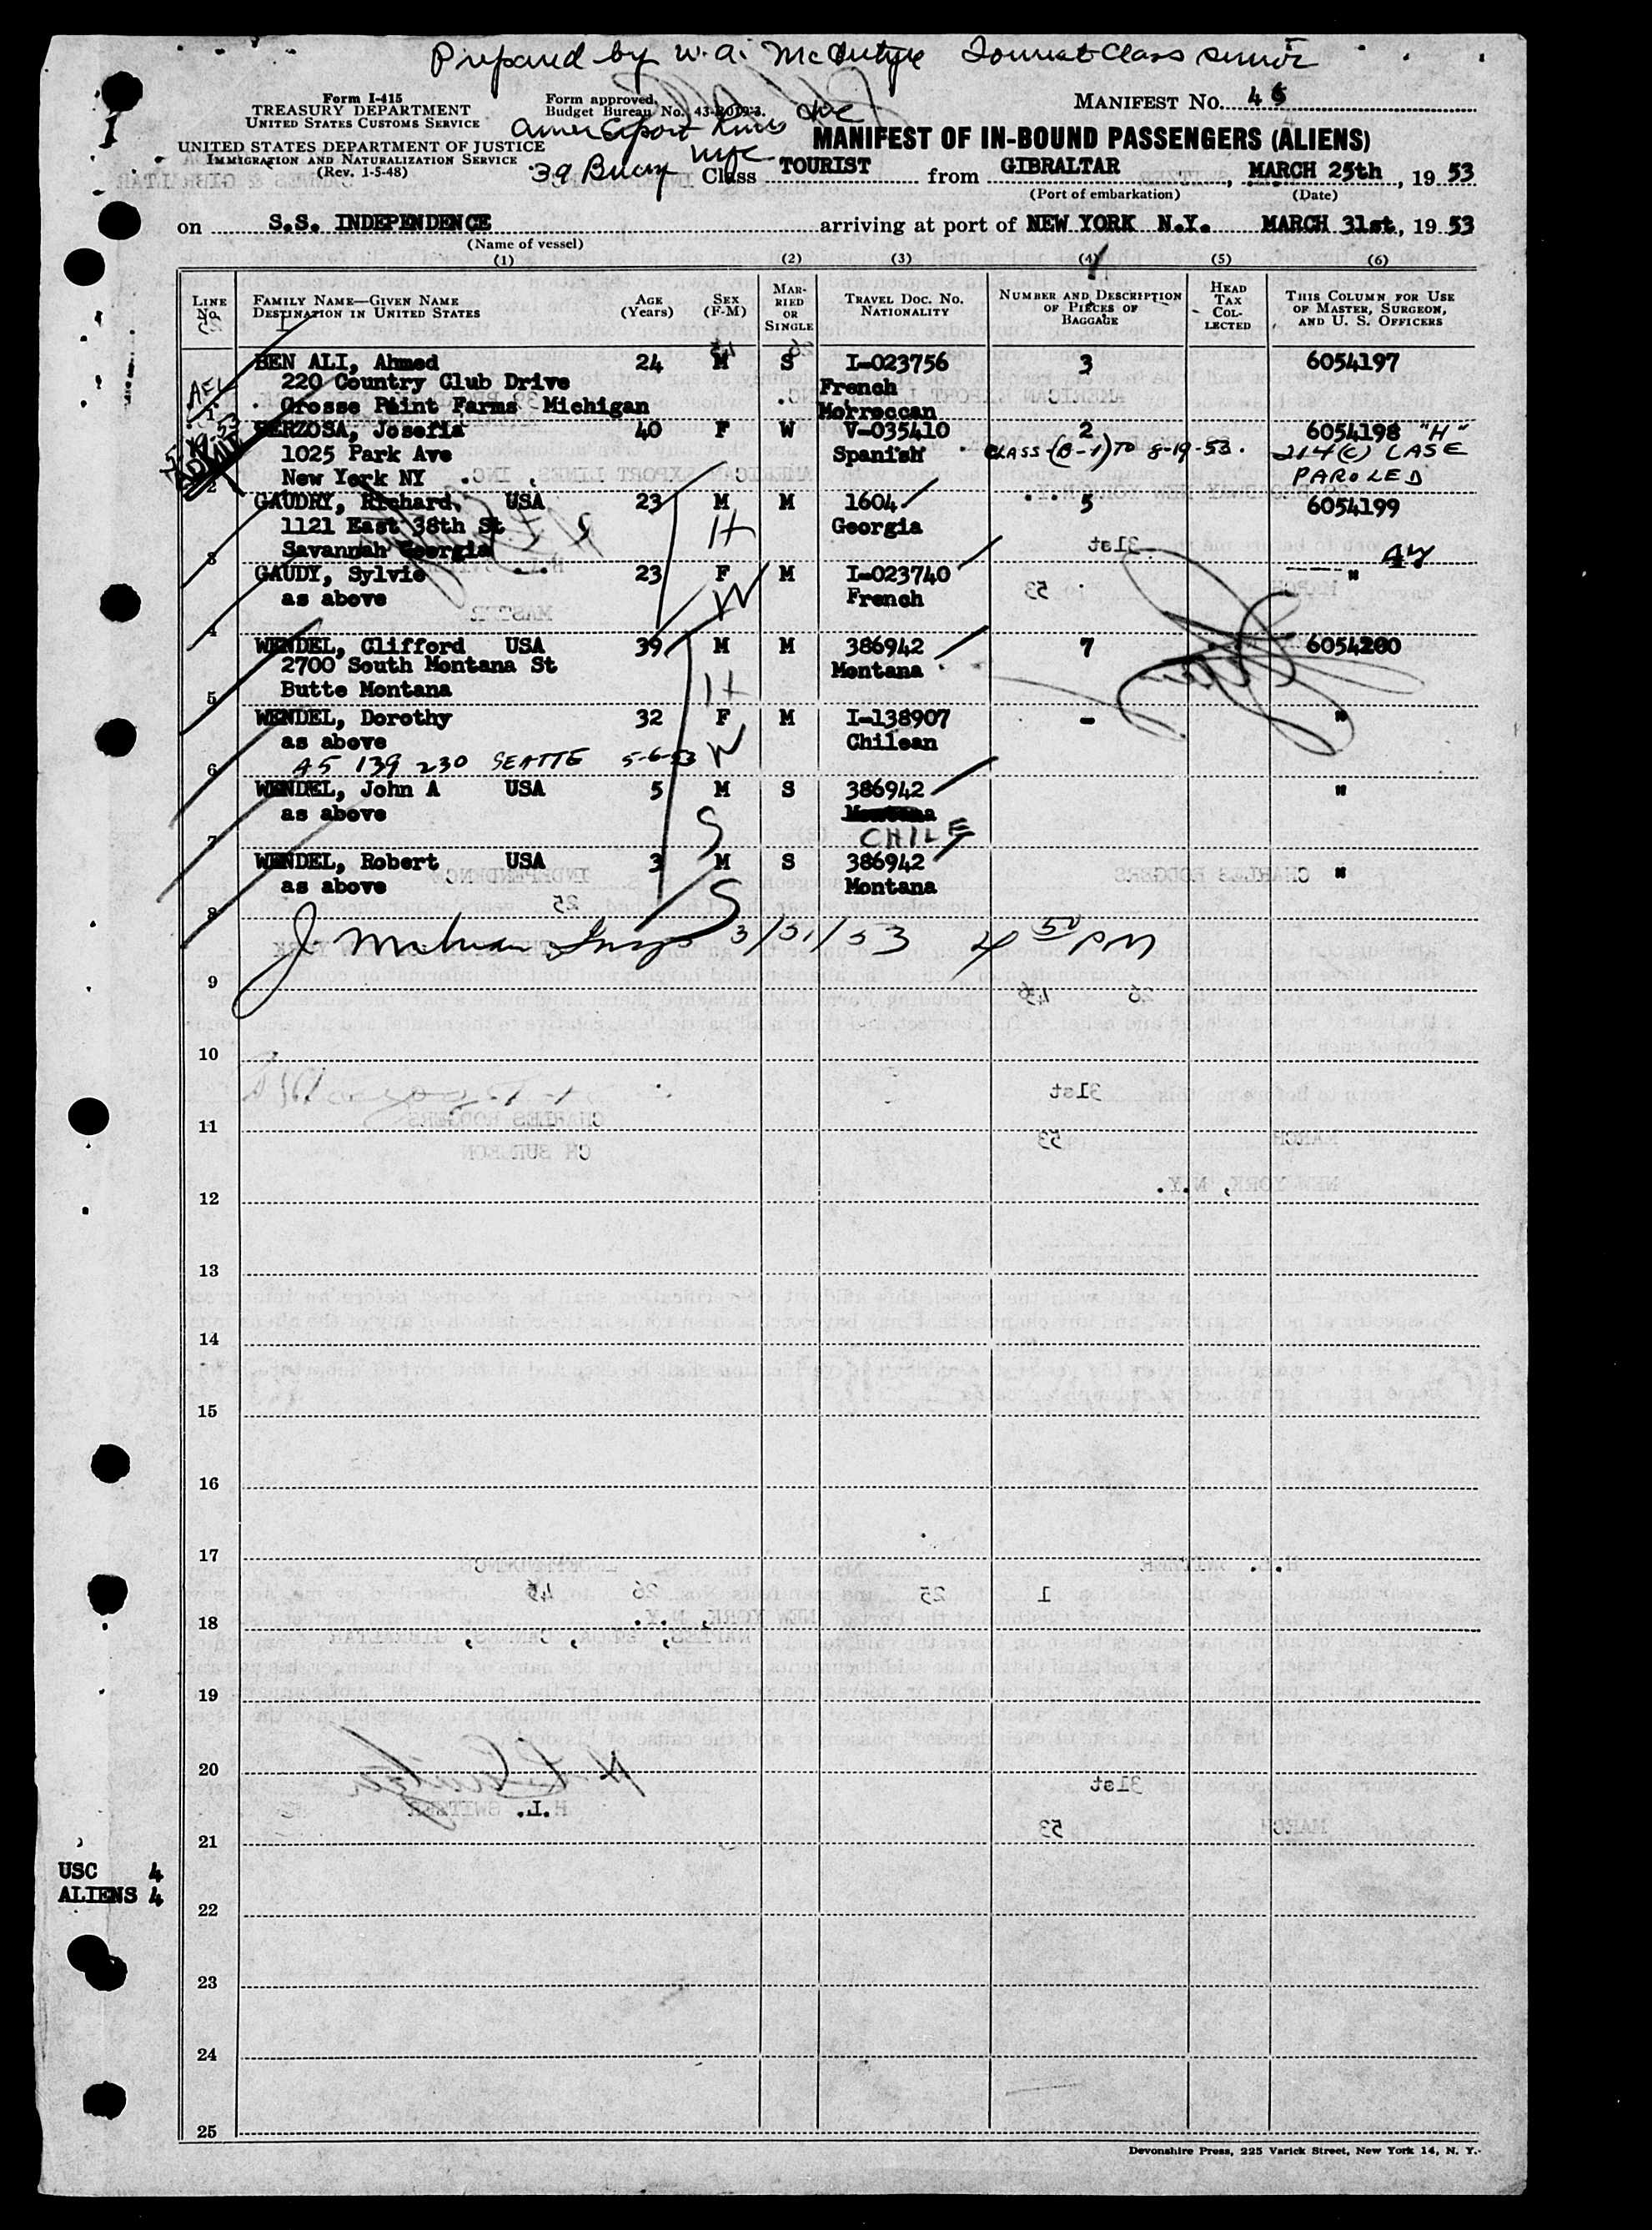 Prepared by W. A. McIntyre Tourist Class
Form I-415
TREASURY DEPARTMENT
UNITED STATES CUSTOMS SERVICE
UNITED STATES DEPARTMENT OF JUSTICE
IMMIGRATION AND NATURALIZATION SERVICE
(Rev. 1-5-48)
Form approved.
Budget Bureau No. 43-R019-3.
Amer Export Lines Inc
39 Bway NYC
MANIFEST NO. 45
MANIFEST OF IN-BOUND PASSENGERS (ALIENS)
Class TOURIST from GIBRALTAR, MARCH 25th, 19 53
(Port of embarkation) (Date)
on S.S. INDEPENDENCE arriving at port of NEW YORK N.Y. MARCH 31st, 19 53
(Name of vessel)
(1) (2) (3) (4) (5) (6)
LINE No. FAMILY NAME—GIVEN NAME DESTINATION IN UNITED STATES AGE (Years) SEX (F-M) MARRIED OR SINGLE TRAVEL DOC. NO. NATIONALITY NUMBER AND DESCRIPTION OF PIECES OF BAGGAGE HEAD TAX COLLECTED THIS COLUMN FOR USE OF MASTER, SURGEON, AND U. S. OFFICERS
BEN ALI, Ahmed 24 M S I-023756 3 6054197
220 Country Club Drive French
1 Grosse Point Farms Michigan Morroccan
BERZOSA, Josefia 40 F W V-035410 2 6054198 "H"
1025 Park Ave Spanish CLASS-(B-1) TO 8-19-53. 214(c) CASE
2 New York NY PAROLED
ADMIT
GAUDRY, Richard USA 23 M M 1604 5 6054199
1121 East 38th St H Georgia
3 Savannah Georgia
GAUDY, Sylvie 23 F M I-023740 "
as above W French
4
WENDEL, Clifford USA 39 M M 386942 7 6054200
2700 South Montana St Montana
5 Butte Montana H
WENDEL, Dorothy 32 F M I-138907 - "
as above Chilean
6 A5 139 230 SEATTE 5-6-53 W
WENDEL, John A USA 5 M S 386942 "
as above Montana
7 S CHILE
WENDEL, Robert USA 3 M S 386942 "
as above Montana
8 S
3/31/53 4 50 PM
9
10
11
12
13
14
15
16
17
18
19
20
21
USC 4
ALIENS 4
22
23
24
25
Devonshire Press, 225 Varick Street, New York 14, N. Y.